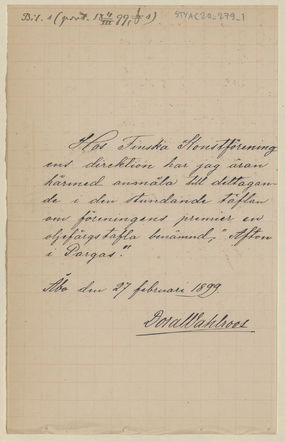 Bil. 1 (prot. 18 4/III 99, § 1)
STYAC20_279_1
Hos Finska Konstförening
ens direktion har jag äran
härmed anmäla till deltagan-
de i den stundande täflan
om föreningens premier en
oljefärgstafla benämnd, "Afton
i Pargas".
Åbo den 27 februari 1899.
Dora Wahlroos